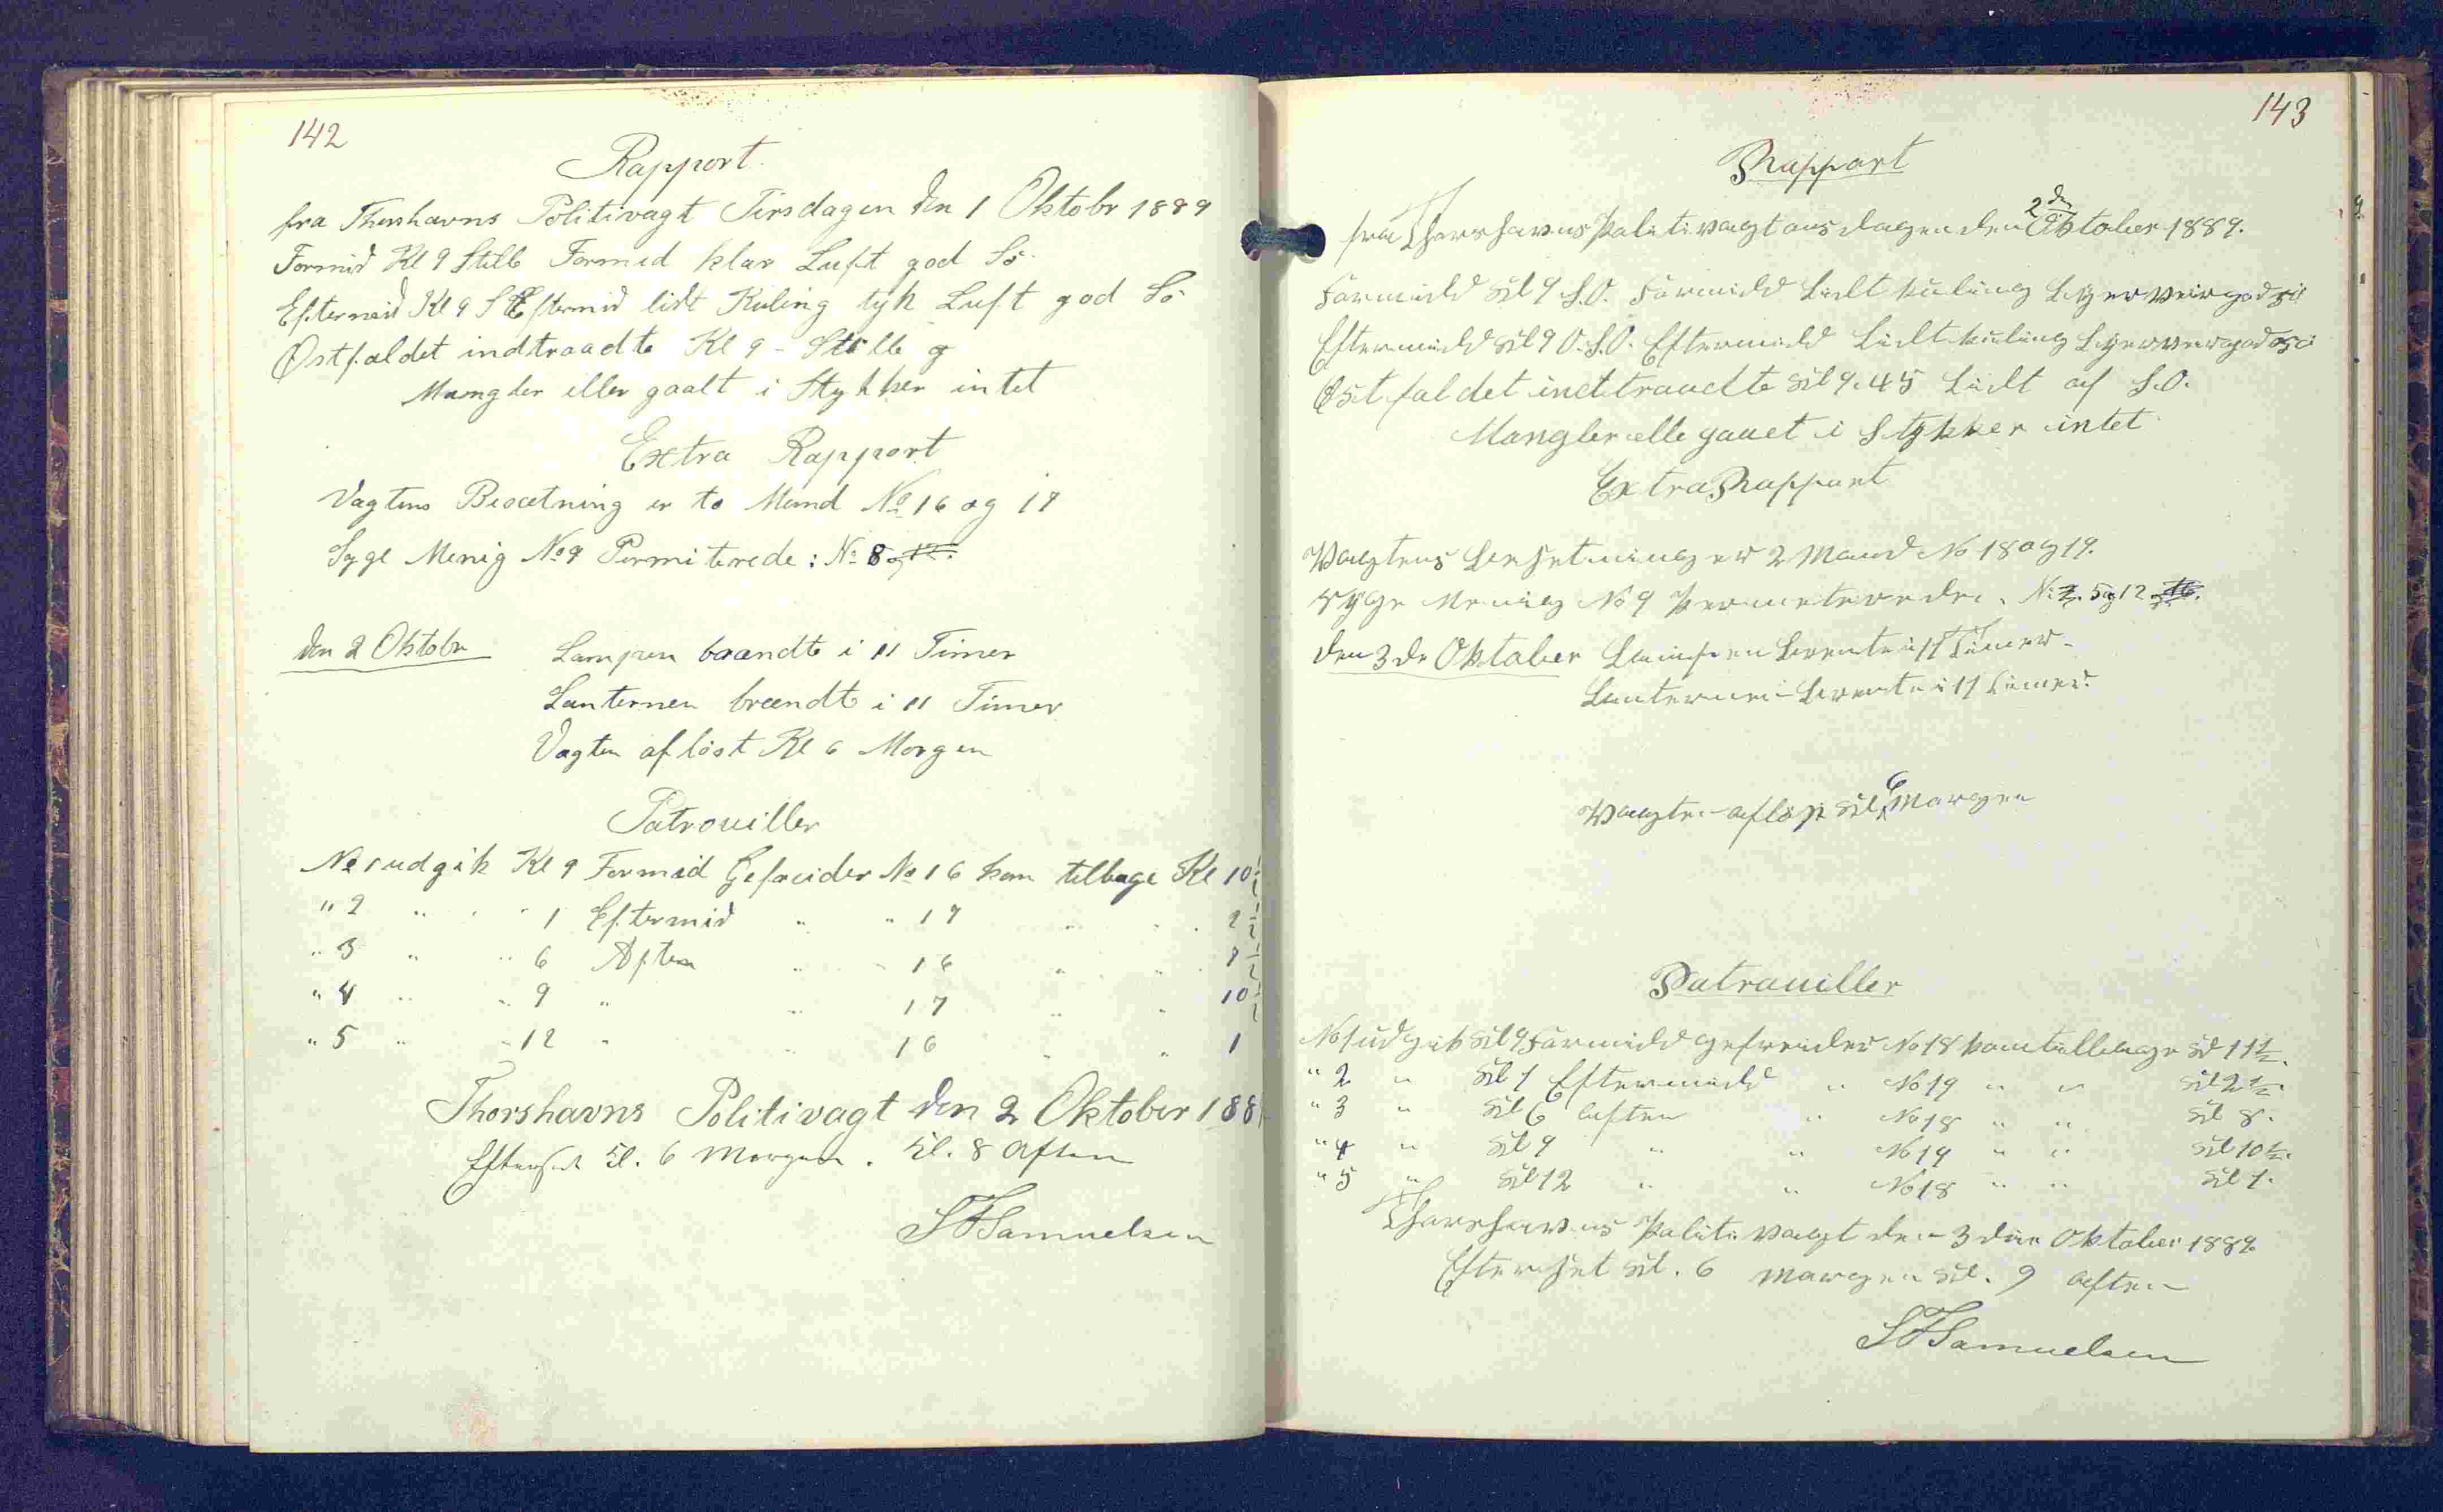 142
Rapport.
fra Thorshavns Politivagt Tirsdagen den 1 Oktobr 1889
Formid Kl 9 Stille Formid klar Luft god Sö
Eftermid Kl 9 S Eftermid lidt Kuling tyk Luft god Sö
Østfaldet indtraadte Kl 9 - Stille
Mangler eller gaalt i Stykker intet
Extra Rapport
Vagtens Besætning er to Mand No 16 og 17
Syge Menig No 9 Permiterede: No 8
den 2 Oktobr Lampen brændte i 11 Timer
Lanternen brændte i 11 Timer
Vagten aflöst Kl 6 Morgen
Patrouiller
No 1 udgik Kl 9 Formid Gefreider No 16 kom tilbage Kl 10 1/2
" 2 " " 1 Eftermid " " 17 " " 2 1/2
" 3 " " 6 Aften " " 16 " " 8 1/2
" 4 " " 9 " " 17 " " 10 1/2
" 5 " " 12 " " 16 " " 1
Thorshavns Politivagt den 2 Oktober 188
Efterset Kl. 6 Morgen. Kl. 8 Aften
SFSamuelsen
143
Rapport
fra Thorshavns Politivagt onsdagen den 2den Oktober 1889.
Formidd Kl 9 S.O. Formidd Lidt kuling god sö
Eftermidd Kl 9 O.S.O. Eftermidd Lidt kuling god sö
Østfaldet indtraadte Kl 9.45 Lidt af S.O.
Mangler elle gaaet i Stykker intet
Extra Rapport
Vagtens Besetning er 2 Mand No 18 og 19.
Syge Menig No 9 Permeterede. No 5 og 12
den 3 de Oktober Lampen brente i 11 Timer
Lanternen brente i 11 Timer.
Vagten aflöst Kl 6 Morgen
Patrouiller
No 1 udgik Kl 9 Formidd gefreider No 18 kom tilbage Kl 11 1/2.
" 2 " Kl 1 Eftermidd " No 19 " " Kl 2 1/2.
" 3 " Kl 6 Aften " No 18 " " Kl 8.
" 4 " Kl 9 " " No 19 " " Kl 10 1/2.
" 5 " Kl 12 " " No 18 " " Kl 1.
Thorshavns Politi vagt den 3 die Oktober 1889.
Efterset Kl. 6 Morgen Kl. 9 Aften
SFSamuelsen